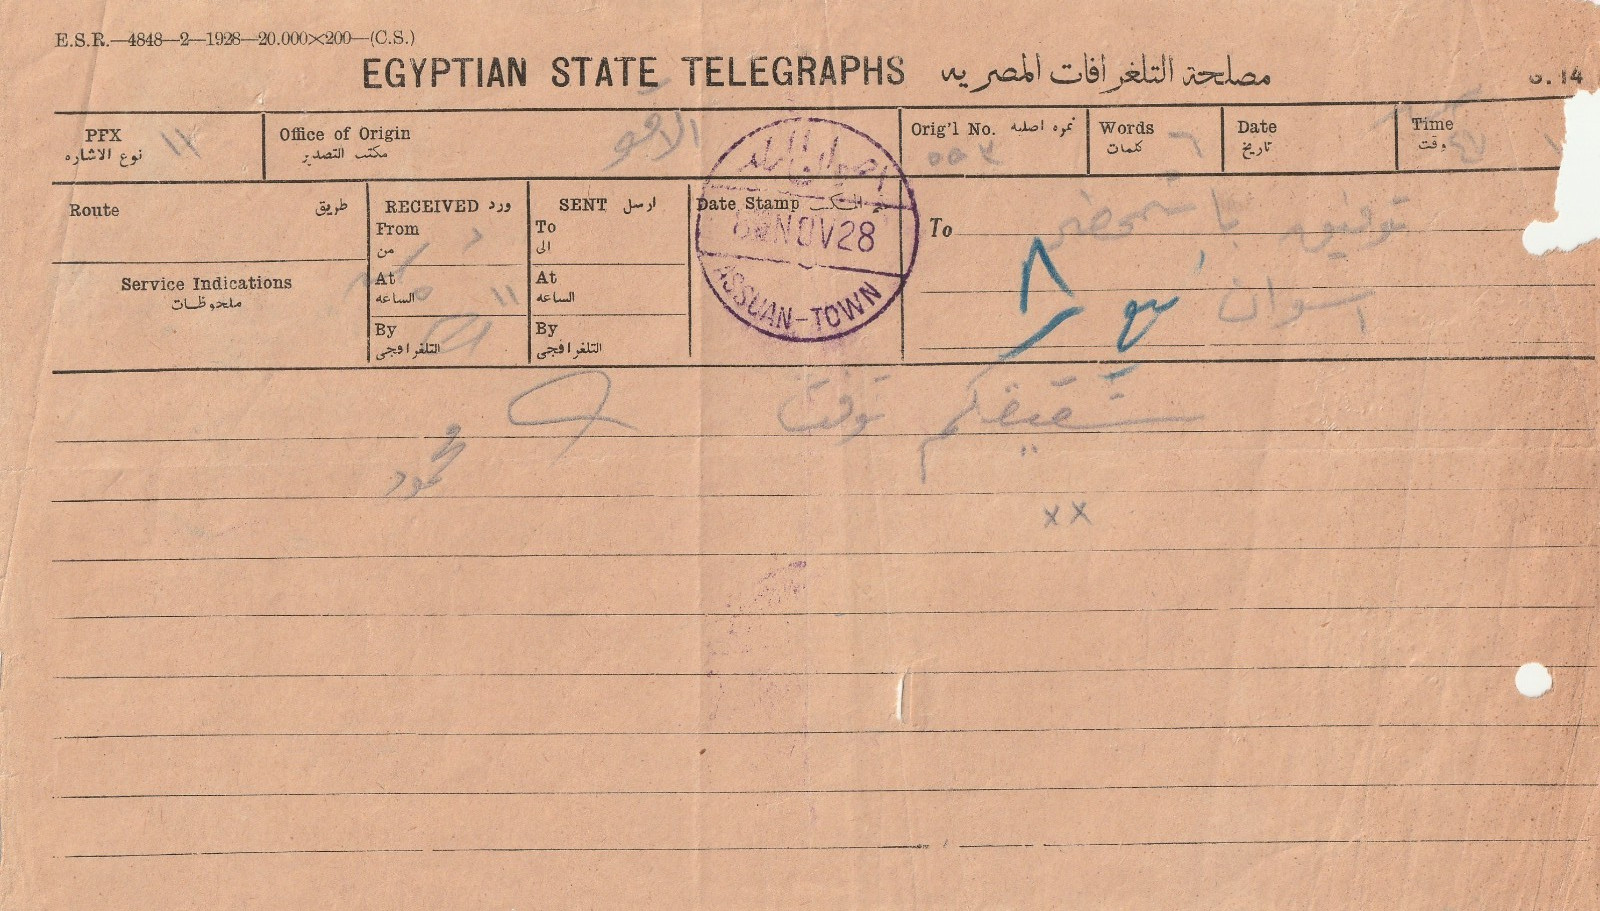 E.S.R.—4848—2—1928—20.000×200—(C.S.)
EGYPTIAN STATE TELEGRAPHS مصلحة التلغرافات المصريه
PFX
نوع الاشاره
١١
Office of Origin
مكتب التصدير
Orig'l No. نمره اصليه
٥٥٣
Words
كلمات
٦
Date
تاريخ
Time
وقت
Route طريق
Service Indications
ملحوظات
RECEIVED ورد
From
من
At
الساعه
١١
By
التلغرافجى
SENT ارسل
To
الى
At
الساعه
By
التلغرافجى
Date Stamp
NOV 28
ASSUAN-TOWN
To
توفيق باشمحضر
اسوان
٨
شقيقتكم توفت
محمود
x x